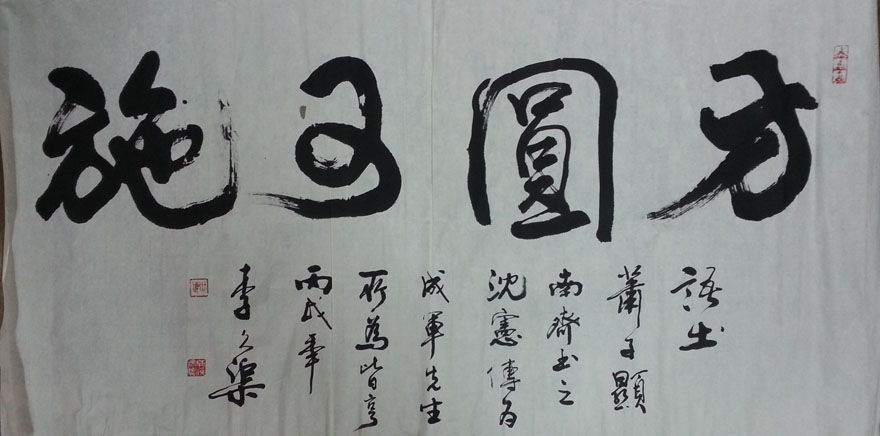 方圓可施
語出
蕭子顯
南齊书之
沈憲傳为
成軍先生
所為皆亨
丙戌年
李久渠